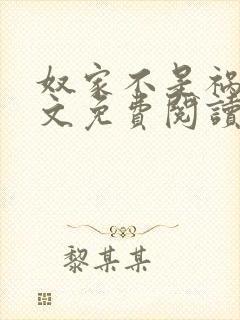 奴家不是祸
文免費閱讀
黎某某